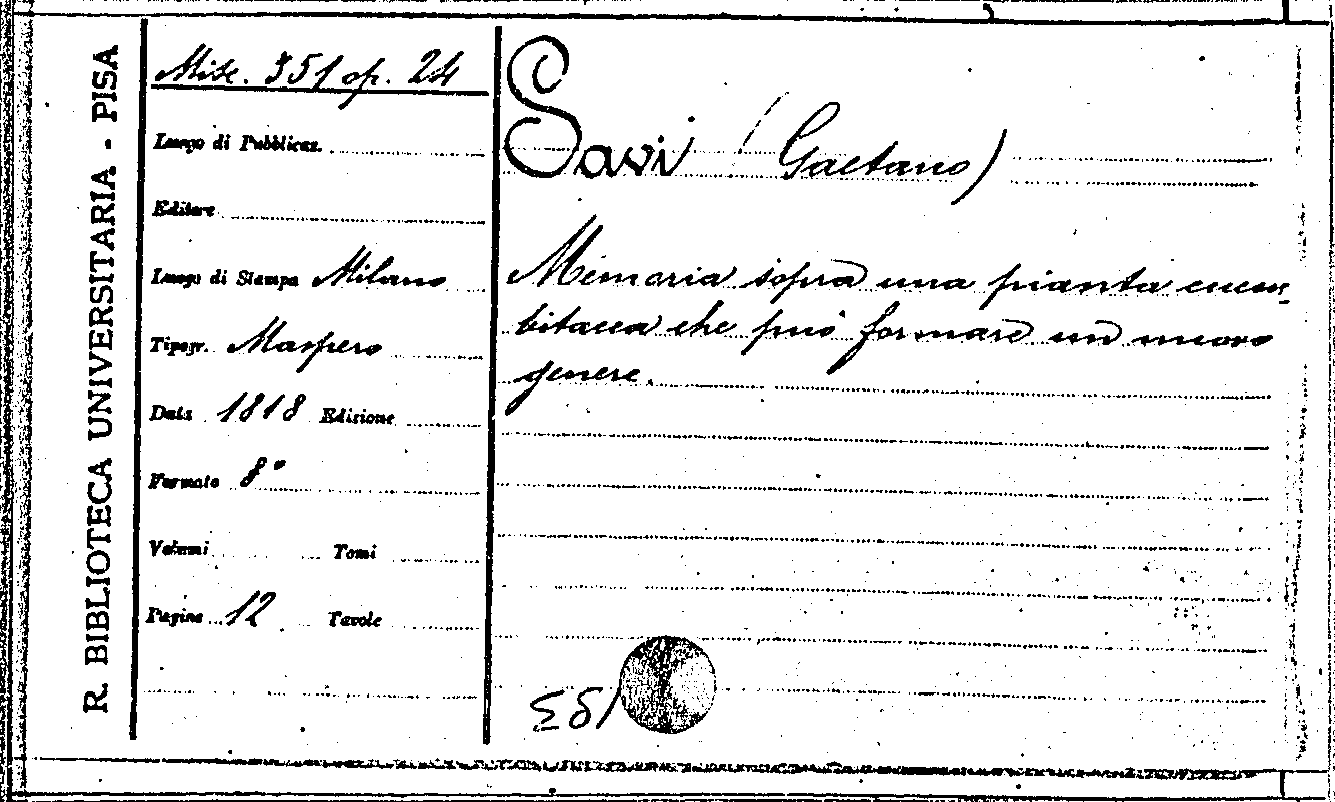 R. BIBLIOTECA UNIVERSITARIA - PISA
Misc. 351 op. 24
Luogo di Pubblicaz.
Editore
Luogo di Stampa Milano
Tipogr. Maspero
Data 1818 Edizione
Formato 8°
Volumi Tomi
Pagine 12 Tavole
Savi (Gaetano)
Memoria sopra una pianta cucur-
bitacea che può formare un nuovo
genere.